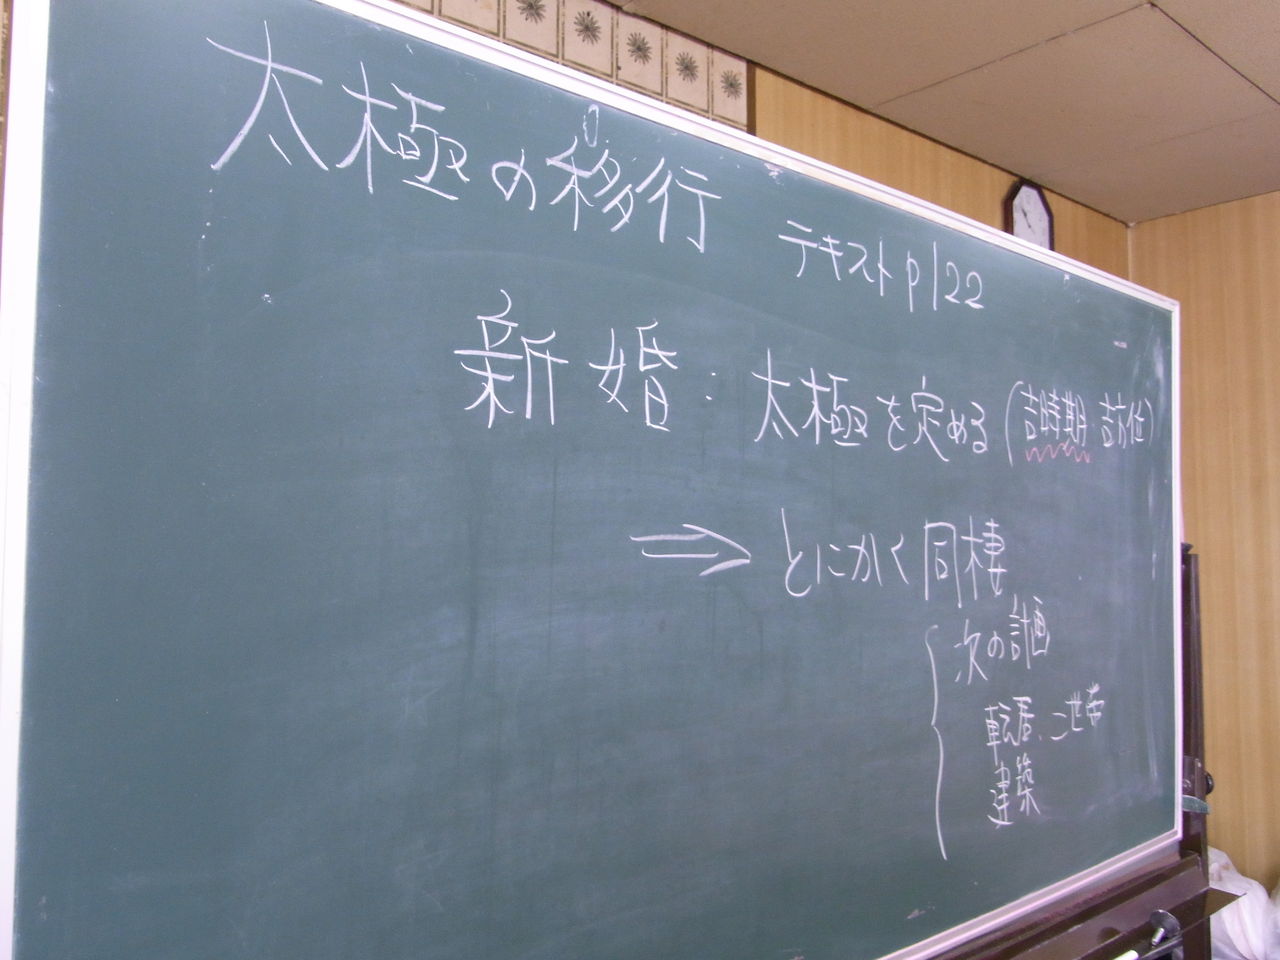 太極の移行
テキストp122
新婚：太極を定める（吉時期 吉方位）
⇒ とにかく同棲
次の計画
転居、二世帯
建築